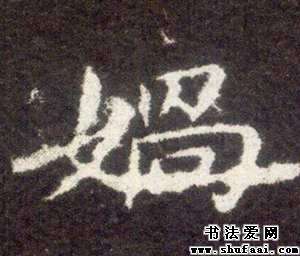 媧
书法爱网
www.shufaai.com